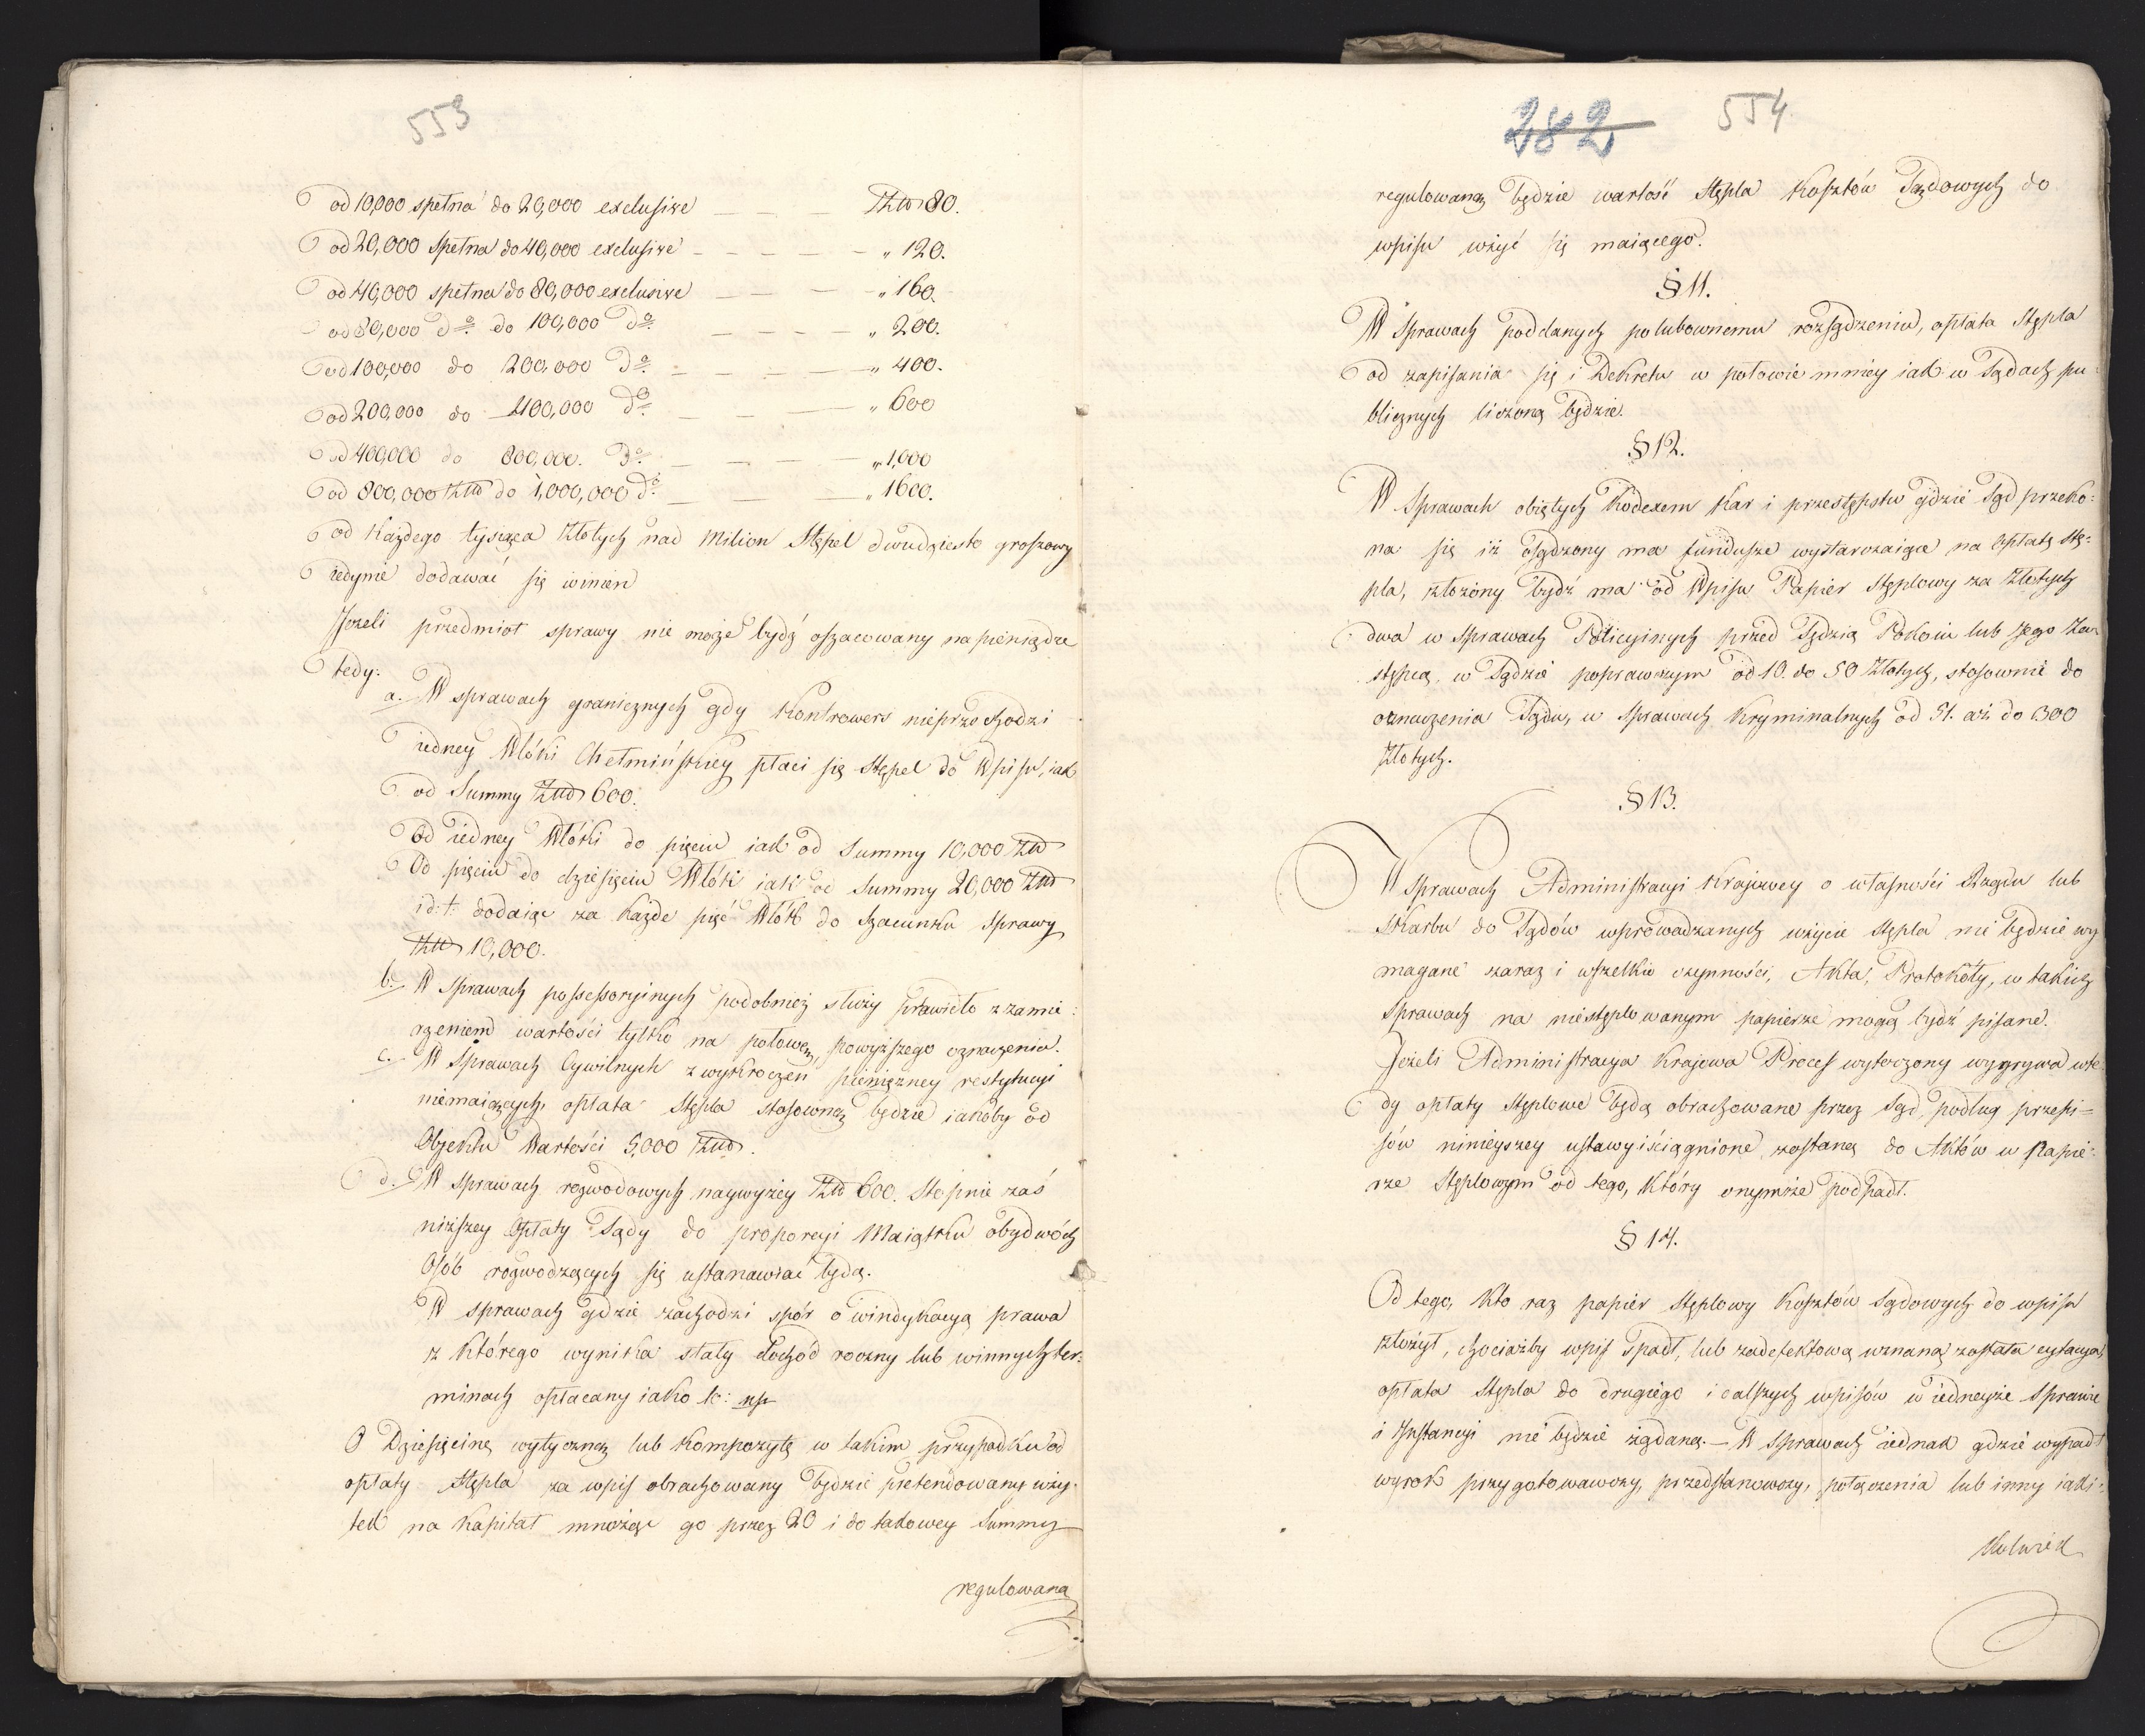 553
od 10,000 spełna do 20,000 exclusive — — — Złł 80.
od 20,000 spełna do 40,000 exclusive — — — — „ 120.
od 40,000 spełna do 80,000 exclusive — — — „ 160.
od 80,000 do do 100,000 do — — — — „ 200.
od 100,000 do 200,000 do — — — — „ 400.
od 200,000 do 400,000 do — — — „ 600
od 400,000 do 800,000. do — — — „ 1,000
od 800,000 Złł do 1,000,000 do — — — „ 1600.
od każdego tysiąca Złotych nad Milion Stępel dwudziesto groszowy
iedynie dodawać się winien
Jeżeli przedmiot sprawy nie może bydź oszacowany na pieniądze
tedy:
a. W sprawach granicznych gdy Kontrowers nieprzechodzi
iedney Włóki Chełmińskiey płaci się Stępel do Wpisu, iak
od Summy Złł 600.
Od iedney Włóki do pięciu iak od Summy 10,000 Złł
Od pięciu do dziesięciu Włók iak od Summy 20,000 Złł
i d: t: dodaiąc za każde pięć Włók do Szacunku Sprawy
Złł 10,000.
b. W Sprawach possessoryinych podobnież służy prawidło z zamie:
rzeniem wartości tylko na połowę, powyższego oznaczenia.
c. W Sprawach Cywilnych z wykroczeń pieniężney restytucyi
niemaiących, opłata Stępla stosowną będzie iakoby od
Objektu Wartości 5,000 Złł.
d. W Sprawach rozwodowych naywyżey Złł 600. Stopnie zaś
niższey Opłaty Sądy do proporcyi Maiątku obydwóch
Osób rozwodzących się ustanawiać będą.
W sprawach gdzie zachodzi spór o windykacyą prawa
z którego wynika stały dochód roczny lub w innych ter:
minach opłacany iako to: np
O Dziesięcinę wytyczną lub Kompozytę w takim przypadku od
opłaty Stępla za wpis obrachowany będzie pretendowany uży:
tek na Kapitał mnożąc go przez 20 i do takowey Summy
regulowaną
282 554
regulowaną będzie wartość Stępla Kosztów Sądowych do
wpisu użyć się maiącego.
§ 11.
W Sprawach poddanych polubownemu rozsądzeniu, opłata Stępla
od zapisania się i Dekretu w połowie mniey iak w Sądach pu:
blicznych liczoną będzie.
§ 12.
W Sprawach obiętych Kodexem Kar i przestępstw gdzie Sąd przeko:
na się iż osądzony ma fundusze wystarczaiące na Opłatę Stę:
pla, złożony bydź ma od Wpisu Papier Stęplowy za Złotych
dwa w Sprawach Policyinych przed Sędzią Pokoiu lub Jego Za:
stępcą, w Sądzie poprawczym od 10. do 50 Złotych, stosownie do
oznaczenia Sądu, w Sprawach Kryminalnych od 51. aż do 300
Złotych.
§ 13.
W Sprawach Administracyi Krajowey o własności Rządu lub
Skarbu do Sądów wprowadzanych użycie Stępla nie będzie wy
magane zaraz i wszelkie czynności, Akta, Protokóły, w takich
Sprawach na niestęplowanym papierze mogą bydź pisane.
Jeżeli Administracya Krajowa Proces wytoczony wygrywa wte
dy opłaty Stęplowe będą obrachowane przez Sąd, podług przepi=
sów ninieyszey ustawy i ściągnione zostaną do Aktów w Papie:
rze Stęplowym od tego, który onymże podpadł.
§ 14.
Od tego, kto raz papier Stęplowy Kosztów Sądowych do wpisu
złożył, chociażby wpis spadł, lub za defektową uznaną została cytacya,
opłata Stępla do drugiego i dalszych wpisów w iedneyże Sprawie
i Instancyi nie będzie żądaną. — W Sprawach iednak gdzie wypadł
wyrok przygotowawczy, przedstanowczy, połączenia lub inny iaki:
kolwiek